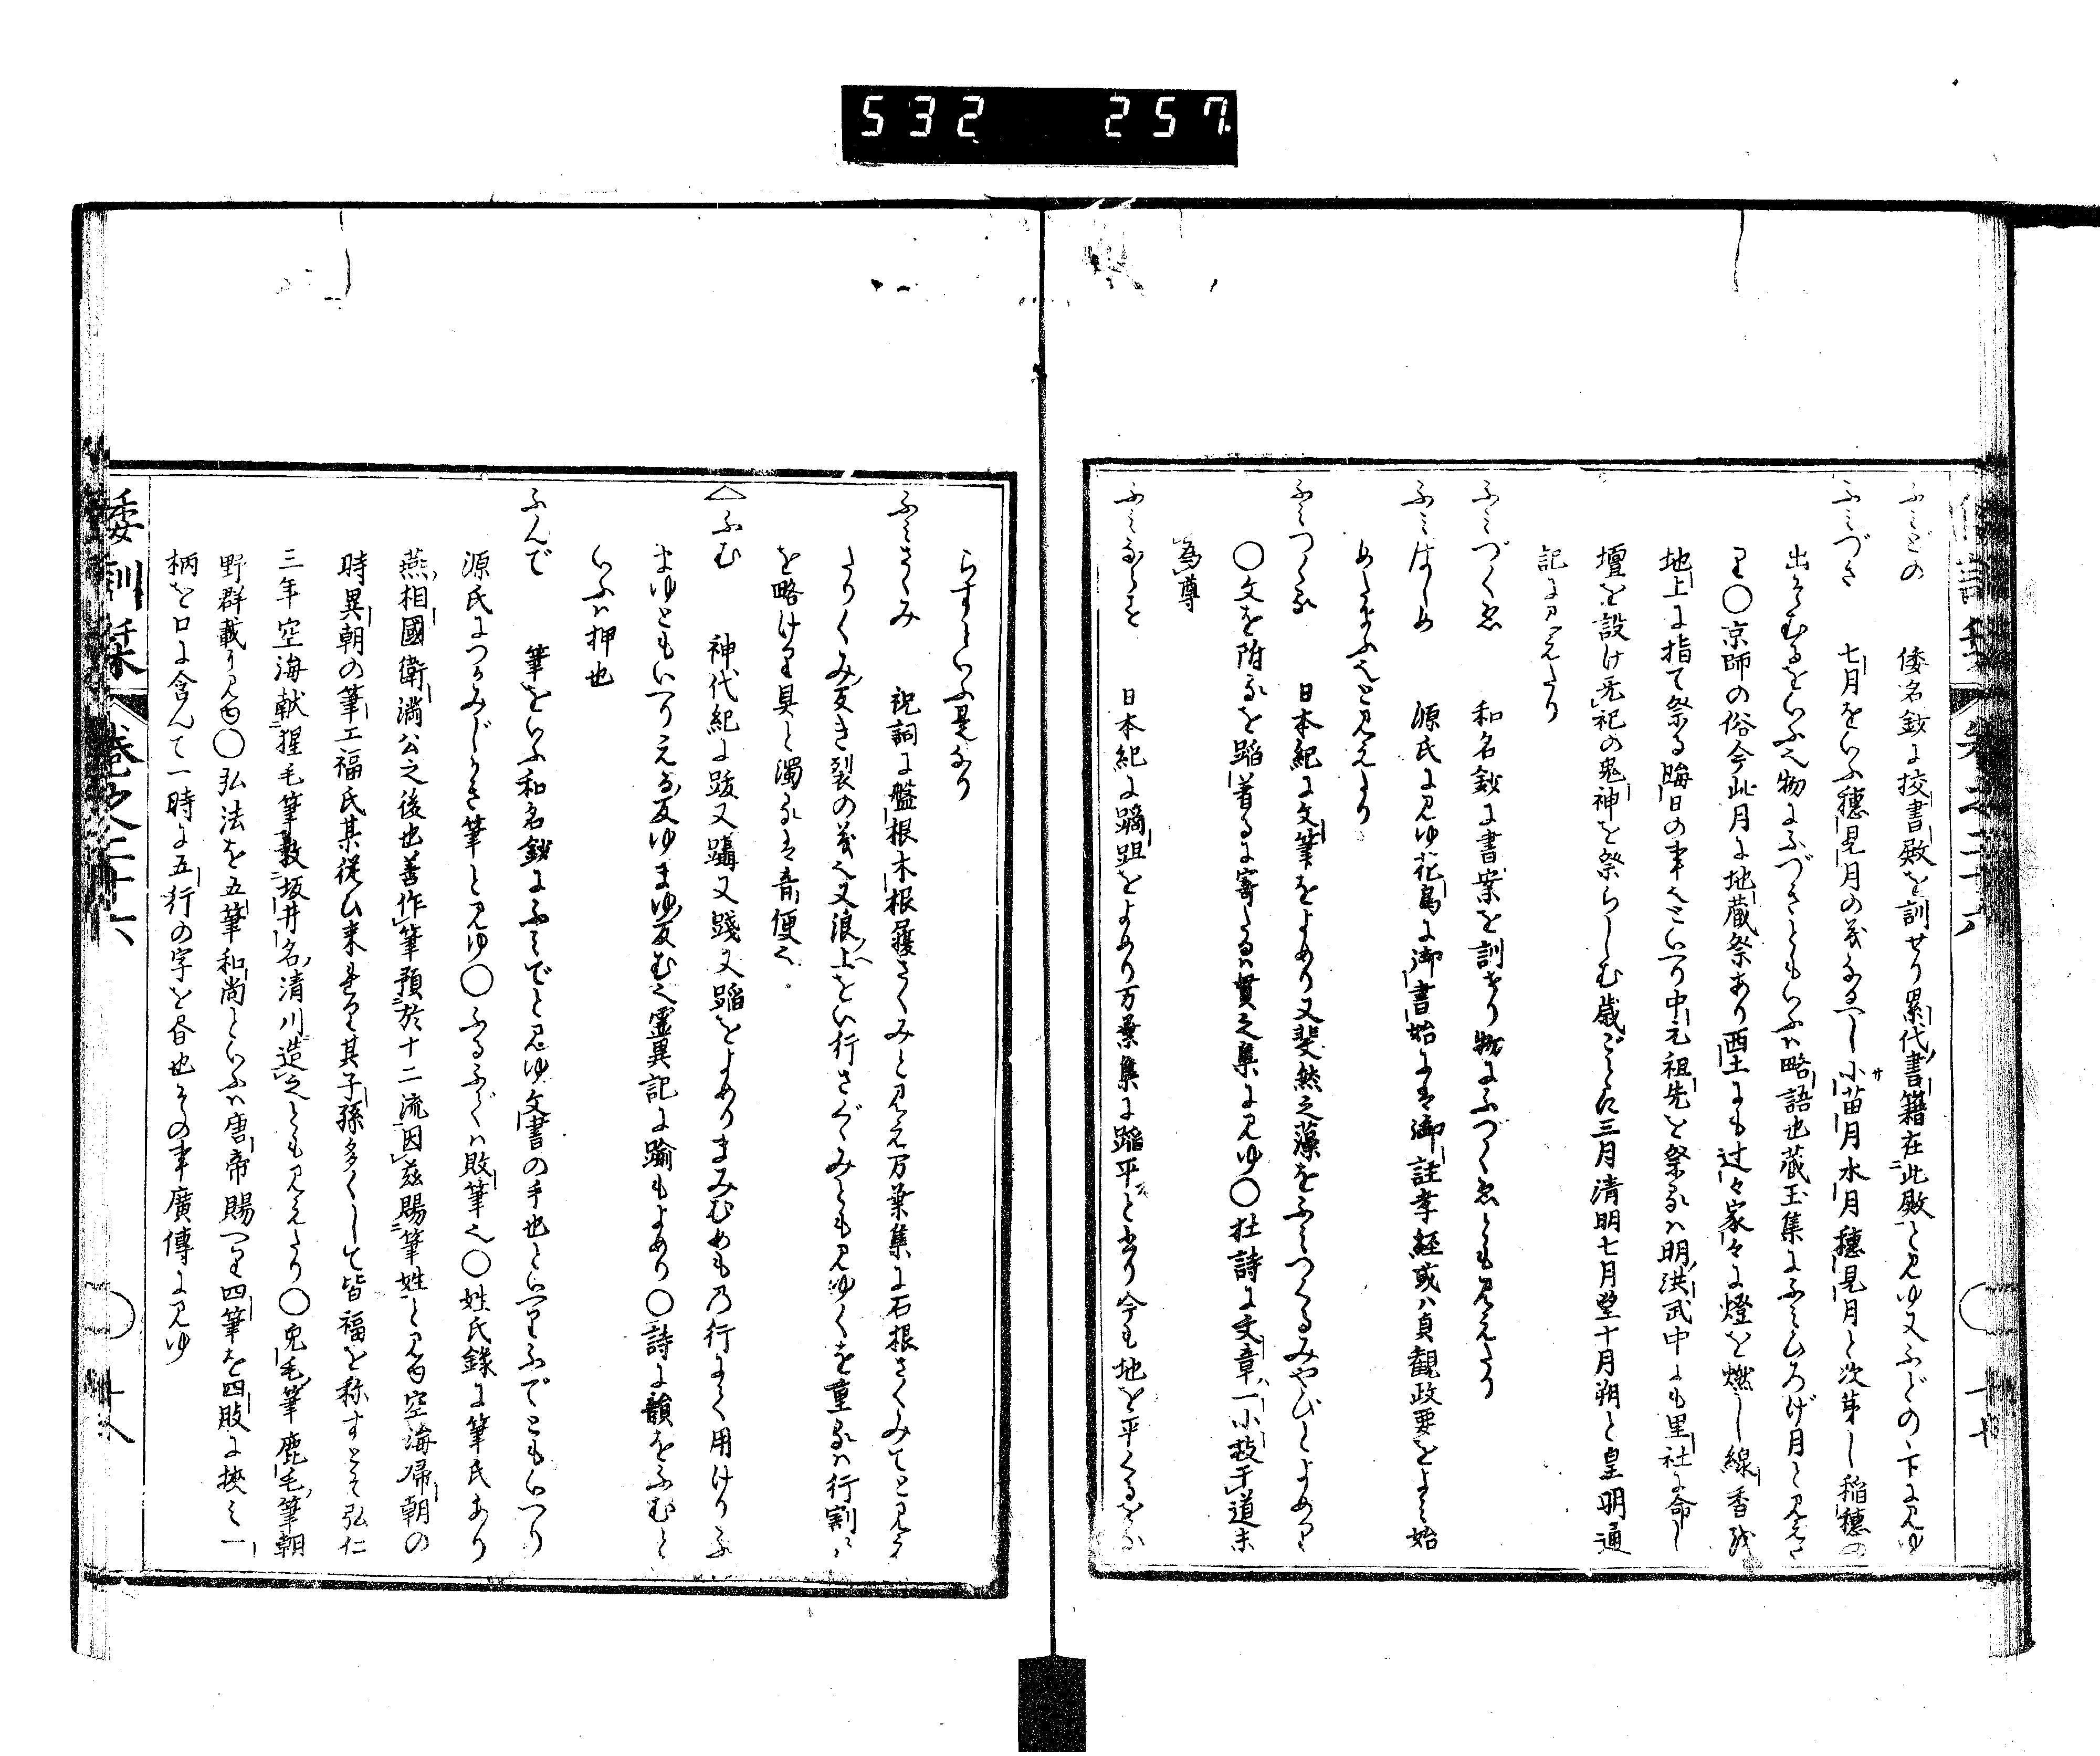 532 257
ふみどの 倭名鈔に挍書殿を訓せり累代書籍在此殿と見ゆ又ふどの下に見ゆ
ふみづき 七月をいふ穂見月の義なるへし小苗月水月穂見月と次第し稲穂の
出そむるをいふ也物にふづきともいふハ略語也蔵玉集にふみひろげ月と見えた
り〇京師の俗今此月に地蔵祭あり西土にも辻々家々に燈を燃し線香を
地上に指て祭る晦日の事也といへり中元祖先を祭るハ明洪武中にも里社に命し
壇を設け无祀の鬼神を祭らしむ歳ごとに三月清明七月望十月朔と皇明通
記に見えたり
ふみづくゑ 和名鈔に書案を訓せり物にふづくゑとも見えたり
ふみはしめ 源氏に見ゆ花鳥に御書始には御註孝経或ハ貞観政要をよみ始
めたまふへと見えたり
ふみつくる 日本紀に文筆をよめり又斐然之藻をふみつくるみやびとよめり
〇文を附るを蹈着るに寄たるハ貫之集に見ゆ〇杜詩に文章一小技于道未
為尊
ふみならす 日本紀に蹢跙をよめり万葉集に蹈平と書り今も地を平くるをな
らすといふ是なり
ふみさくみ 祝詞に磐根木根履さくみと見え万葉集に石根さくみてと見えた
りくみ反き裂の義也又浪ノ上をい行さぐくみとも見ゆくを重るハ行割ハ
を略けり具と濁るは音便也
△ふむ 神代紀に跋又躡又踐又蹈をよめりまみむめも乃行によく用けりふ
まゆともいへりえる反ゆまゆ反む也霊異記に踰もよめり〇詩に韻をふむと
いふハ押也
ふんで 筆をいふ和名鈔にふみでと見ゆ文書の手也といへりふでともいへり
源氏につかみじかき筆と見ゆ〇ふるふでハ敗筆也〇姓氏録に筆氏あり
燕相國衛満公之後也善作筆預於十二流因茲賜筆姓と見ゆ空海帰朝の
時異朝の筆工福氏某従ひ来れり其子孫多くして皆福を称すとそ弘仁
三年空海献狸毛筆教坂井名清川造之とも見えたり〇兎毛筆鹿毛筆朝
野群載に見ゆ〇弘法を五筆和尚といふハ唐帝賜へり四筆を四肢に挾み一
柄を口に含んて一時に五行の字を書也その事廣傳に見ゆ
倭訓栞 巻之二十六 十七
倭訓栞 巻之二十六 十八